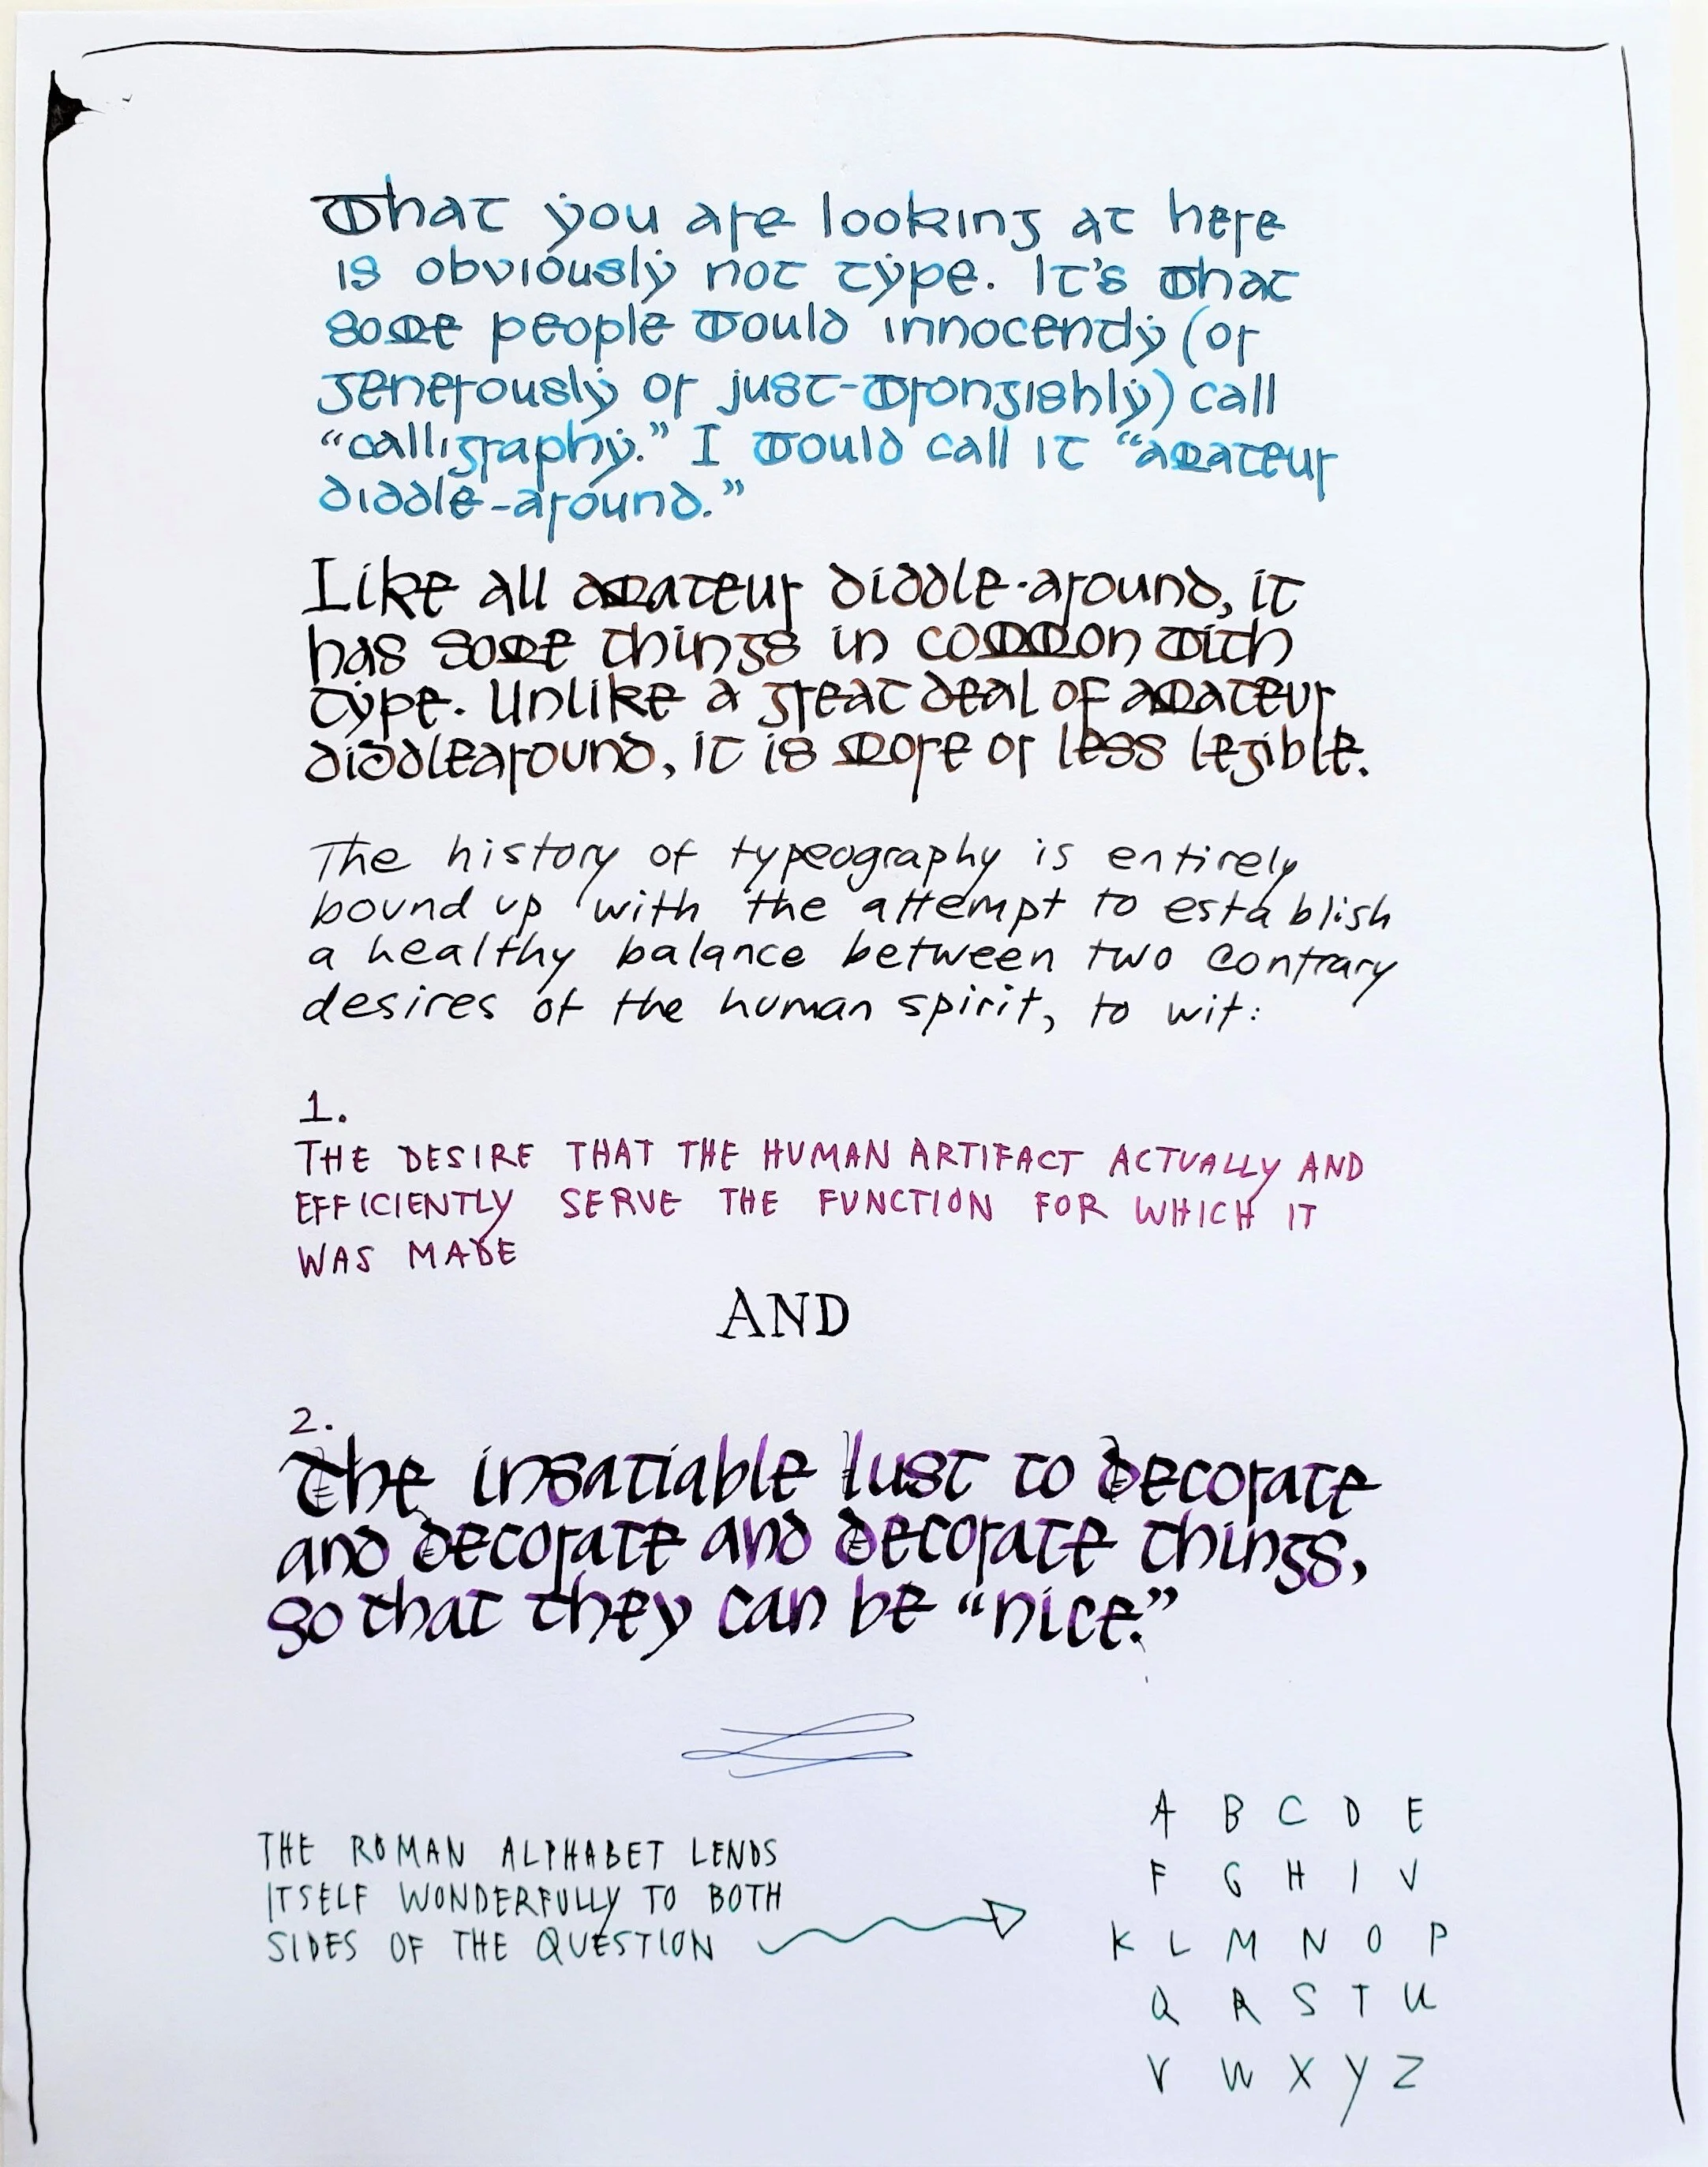 What you are looking at here
is obviously not type. It's what
some people would innocently (or
generously or just-wrongishly) call
“calligraphy.” I would call it “amateur
diddle-around.”
Like all amateur diddle-around, it
has some things in common with
type. Unlike a great deal of amateur
diddlearound, it is more or less legible.
The history of typeography is entirely
bound up with the attempt to establish
a healthy balance between two contrary
desires of the human spirit, to wit:
1.
THE DESIRE THAT THE HUMAN ARTIFACT ACTUALLY AND
EFFICIENTLY SERVE THE FUNCTION FOR WHICH IT
WAS MADE
AND
2.
The insatiable lust to decorate
and decorate and decorate things,
so that they can be “nice.”
THE ROMAN ALPHABET LENDS
ITSELF WONDERFULLY TO BOTH
SIDES OF THE QUESTION
A B C D E
F G H I V
K L M N O P
Q R S T U
V W X Y Z